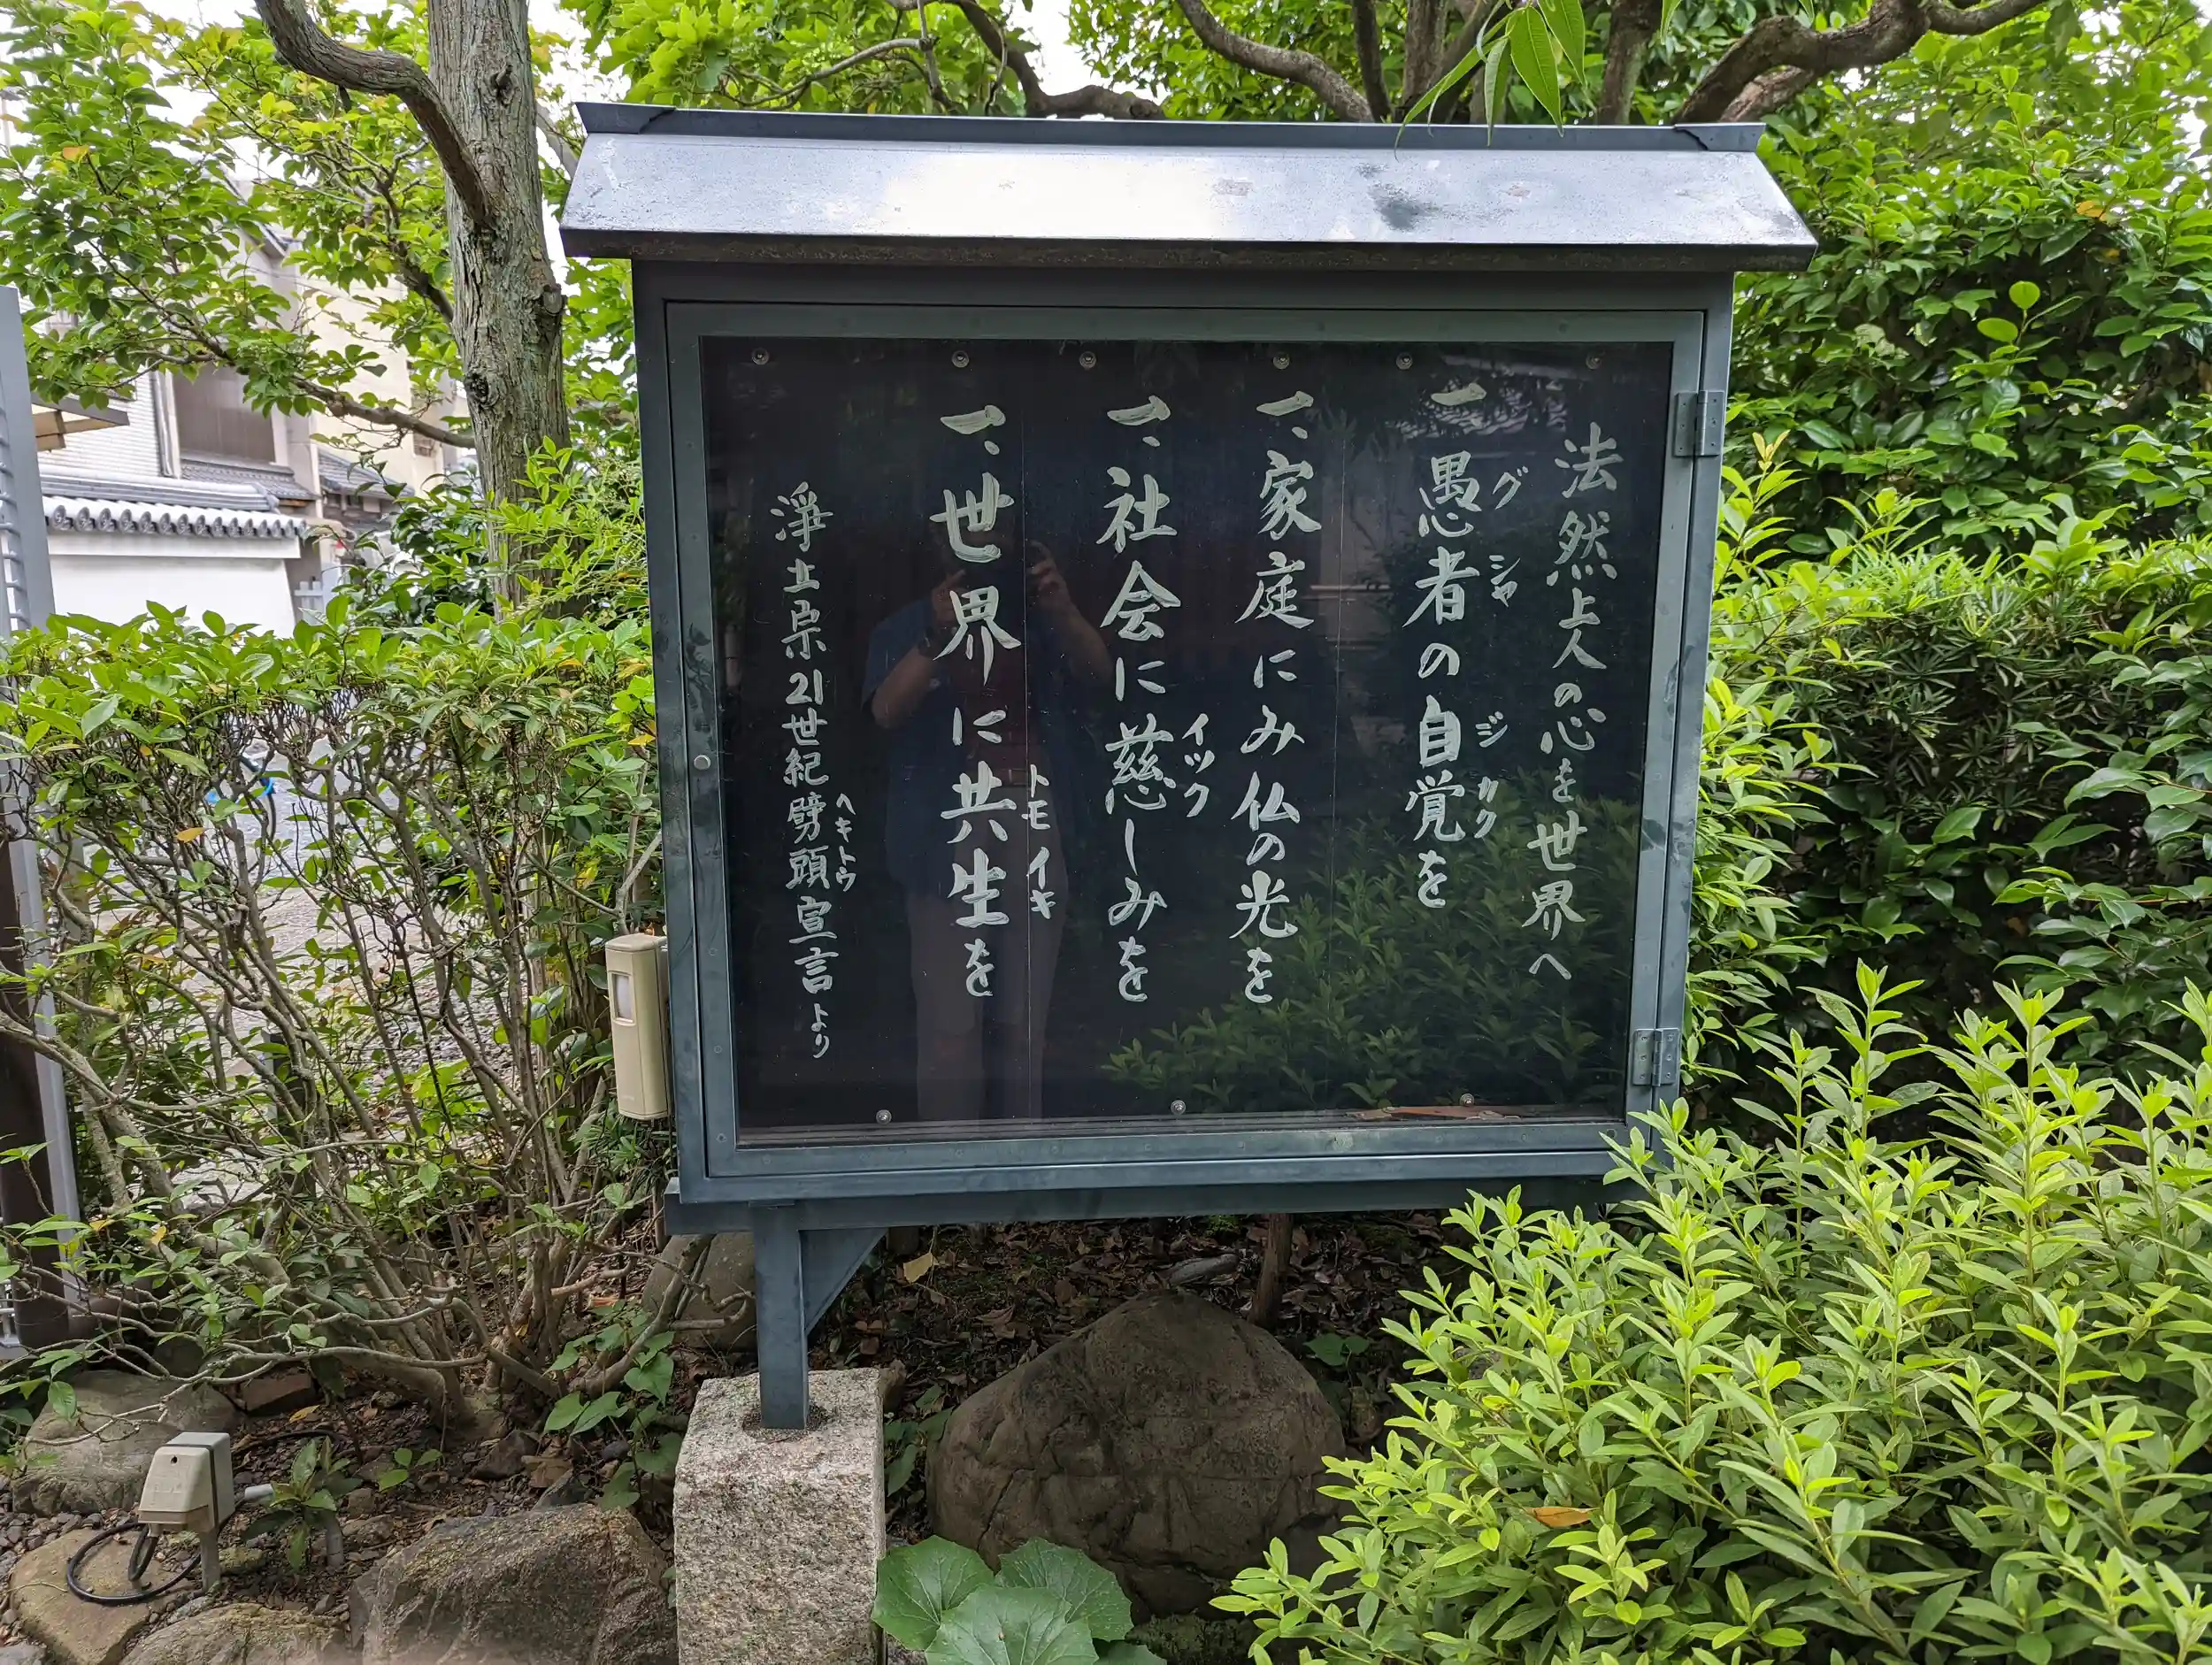 法然上人の心を世界へ
一 愚者の自覚を
グシャ ジカク
一、家庭にみ仏の光を
一、社会に慈しみを
イツク
一、世界に共生を
トモイキ
浄土宗21世紀劈頭宣言より
ヘキトウ